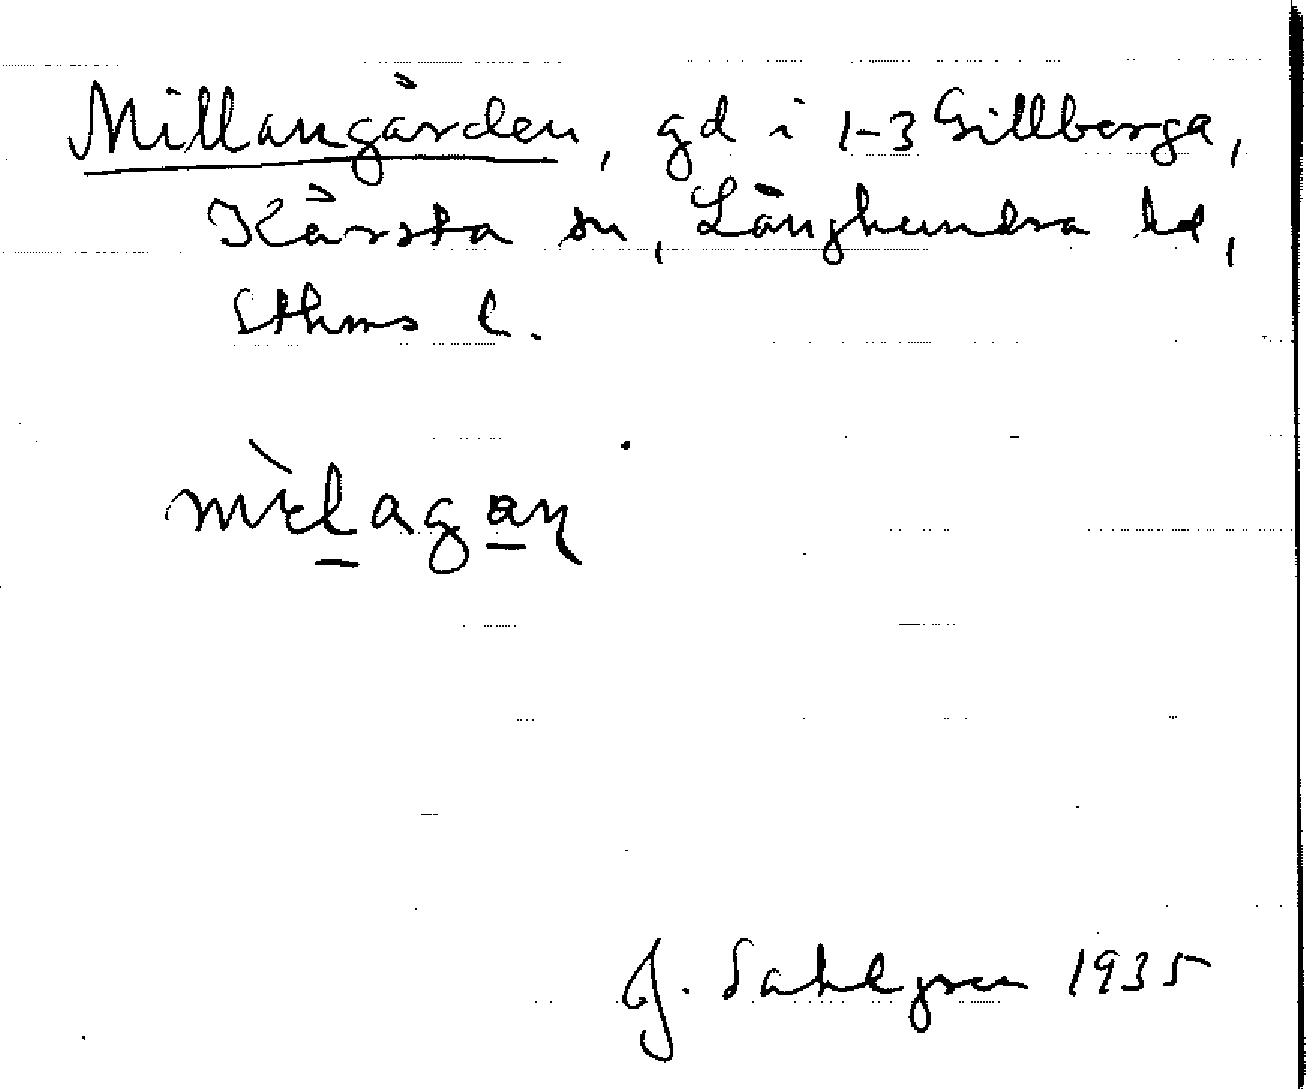 Millangården, gd i 1-3 Gillberga,
Kårsta sn, Långhundra hd,
Sthms l.
mìlagaɳ
J. Sahlgren 1935